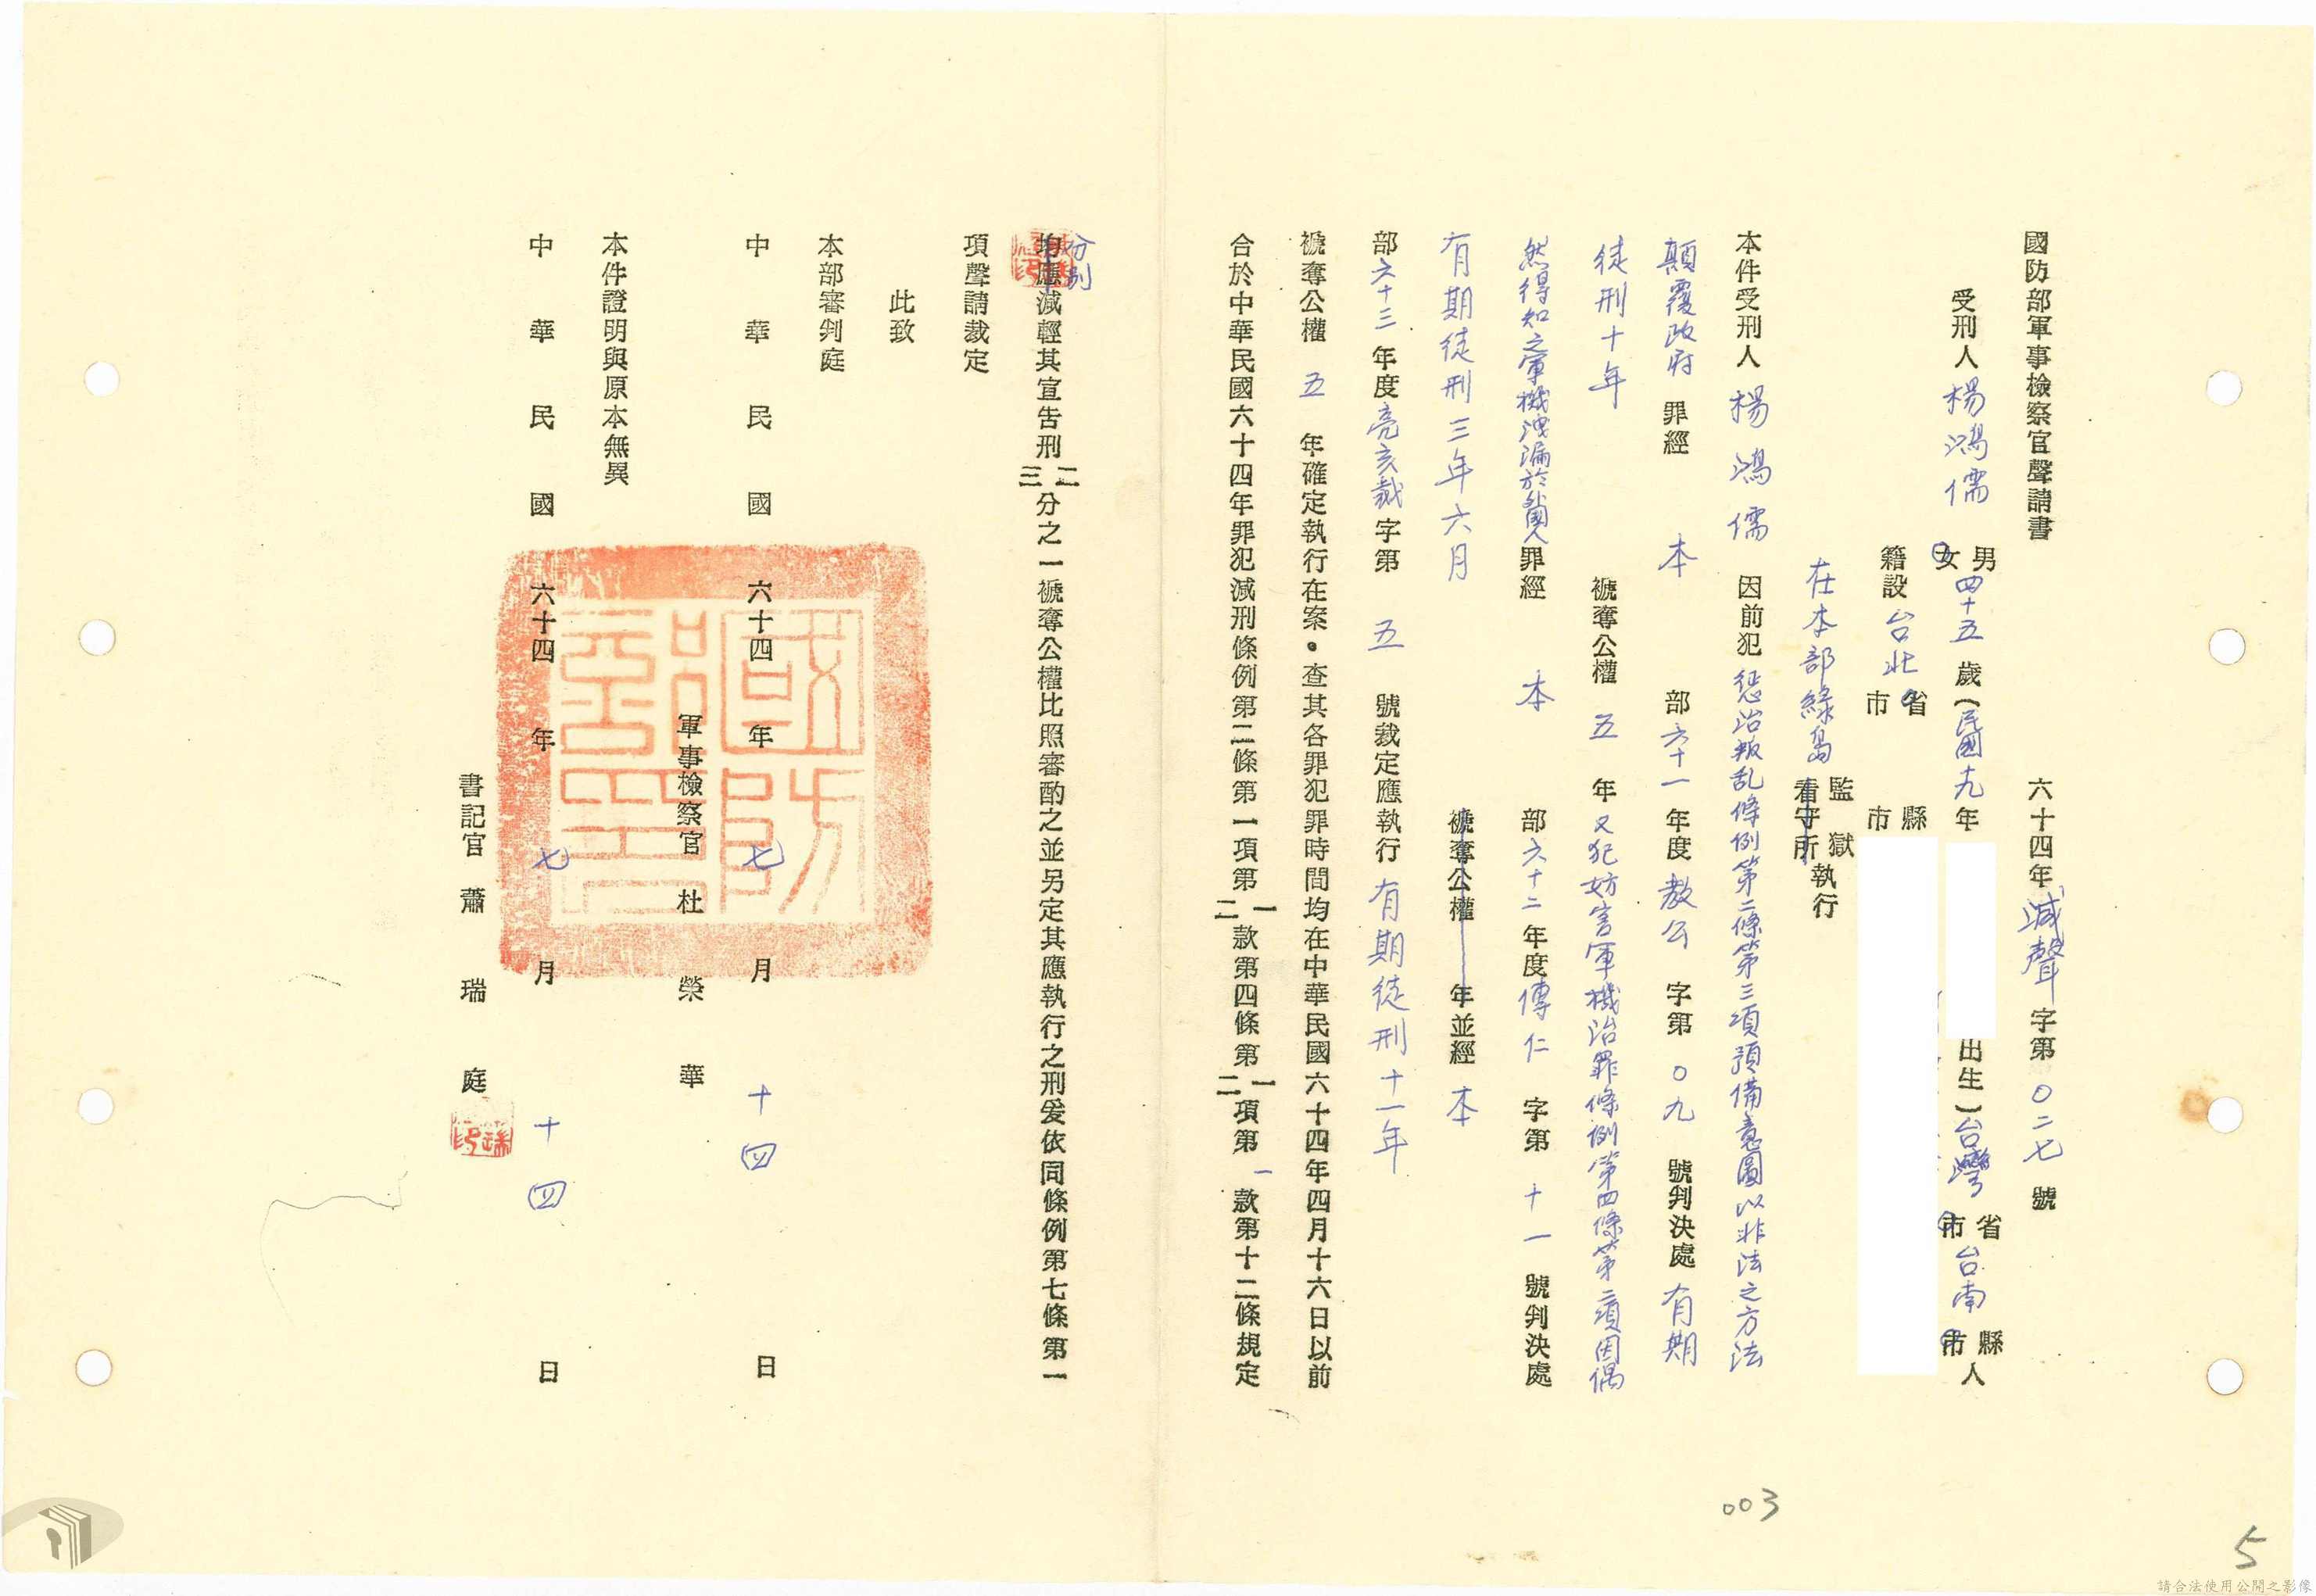 國防部軍事檢察官聲請書 六十四年減聲字第〇二七號
受刑人 楊鴻儒 男女 四十五歲(民國十九年 出生)台灣省市台南縣市人
籍設台北省市 縣市
在本部綠島監獄看守所執行
本件受刑人楊鴻儒因前犯懲治叛乱條例第二條第三項預備意圖以非法之方法
顛覆政府罪經 本 部六十一年度教公字第〇九號判決處有期
徒刑十年 褫奪公權五年又犯妨害軍機治罪條例第四條第二項因偶
然得知之軍機洩漏於他人罪經 本 部六十二年度傳仁字第十一號判決處
有期徒刑三年六月 褫奪公權 年並經 本
部六十三年度亮亥裁字第五號裁定應執行有期徒刑十一年
褫奪公權五年確定執行在案。查其各罪犯罪時間均在中華民國六十四年四月十六日以前
合於中華民國六十四年罪犯減刑條例第二條第一項第一二款第四條第一二項第一款第十二條規定
分別
均應減輕其宣告刑二三分之一褫奪公權比照審酌之並另定其應執行之刑爰依同條例第七條第一
項聲請裁定
此致
本部審判庭
中華民國六十四年七月十四日
軍事檢察官 杜榮華
本件證明與原本無異
中華民國六十四年七月十四日
書記官 蕭瑞庭
國防部印
003
5
請合法使用公開之影像